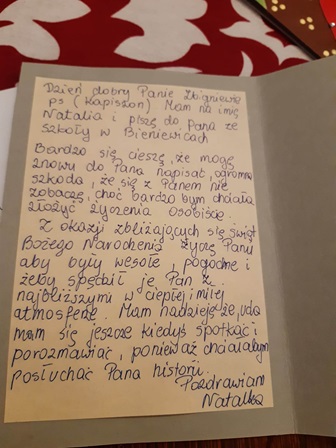 Dzień dobry Panie Zbigniewie
ps (Kapiszon). Mam na imię
Natalia i piszę do Pana ze
szkoły w Bieniewicach
Bardzo się cieszę, że mogę
znowu do Pana napisać, ogromna
szkoda, że się z Panem nie
zobaczę, choć bardzo bym chciała
złożyć życzenia osobiście.
Z okazji zbliżających się świąt
Bożego Narodzenia życzę Panu
aby były wesołe, pogodne i
żeby spędził je Pan z
najbliższymi w ciepłej i miłej
atmosferze. Mam nadzieję, że uda
nam się jeszcze kiedyś spotkać i
porozmawiać, ponieważ chciałabym
posłuchać Pana historii.
Pozdrawiam
Natalka